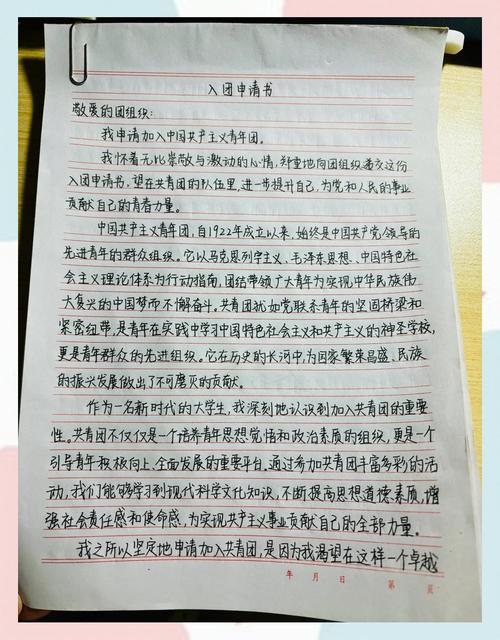 入团申请书
敬爱的团组织:
我申请加入中国共产主义青年团。
我怀着无比崇敬与激动的心情,郑重地向团组织递交这份
入团申请书,望在共青团的队伍里,进一步提升自己,为党和人民的事业
贡献自己的青春力量。
中国共产主义青年团,自1922年成立以来,始终是中国共产党领导的
先进青年的群众组织。它以马克思列宁主义、毛泽东思想、中国特色社
会主义理论体系为行动指南,团结带领广大青年为实现中华民族伟
大复兴的中国梦而不懈奋斗。共青团犹如党联系青年的坚固桥梁和
紧密纽带,是青年在实践中学习中国特色社会主义和共产主义的神圣学校,
更是青年群众的先进组织。它在历史的长河中,为国家繁荣昌盛、民族
的振兴发展做出了不可磨灭的贡献。
作为一名新时代的大学生,我深刻地认识到加入共青团的重要
性。共青团不仅仅是一个培养青年思想觉悟和政治素质的组织,更是一个
引导青年积极向上、全面发展的重要平台。通过参加共青团丰富多彩的活
动,我们能够学习到现代科学文化知识,不断提高思想道德素质,增
强社会责任感和使命感,为实现共产主义事业贡献自己的全部力量。
我之所以坚定地申请加入共青团,是因为我渴望在这样一个卓越
年 月 日 第 页